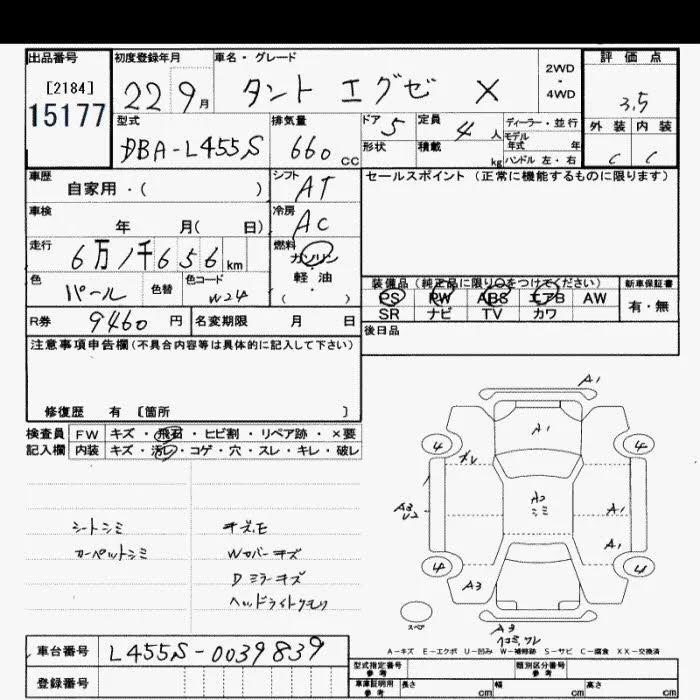 出品番号
[2184]
15177
初度登録年月
22 9月
車名・グレード
タント エグゼ X
2WD・4WD
評価点
3.5
外装 内装
C C
型式
DBA-L455S
排気量
660 cc
ドア 5
定員 4人
形状
積載 kg
ディーラー・並行
モデル年式 年
ハンドル 左・右
車歴
自家用・( )
シフト
AT
セールスポイント (正常に機能するものに限ります)
車検
年 月( 日)
冷房
AC
走行
6万1千656km
燃料
ガソリン
・
軽油
( )
色
パール
色替
色コード
W24
装備品 (純正品に限り○をつけてください)
PS PW ABS エアB AW
SR ナビ TV カワ
新車保証書
有・無
R券 9460円
名変期限 月 日
後日品
注意事項申告欄(不具合内容等は具体的に記入して下さい)
修復歴 有 [箇所 ]
検査員 FW キズ・飛石・ヒビ割・リペア跡・×要
記入欄 内装 キズ・汚レ・コゲ・穴・スレ・キレ・破レ
シートシミ
カーペットシミ
キズ,E
Wカバーキズ
Dミラーキズ
ヘッドライトクモリ
A1
A1
4 4
A2
シミ
A3
A1
A1
4 4
A3
スペア
A3
A-キズ E-エクボ U-凹み W-補修跡 S-サビ C-腐食 XX-交換済
車台番号 L455S-0039839
登録番号
型式指定番号 参考
類別区分番号 参考
車庫証明用 参考 長さ cm 幅 cm 高さ cm